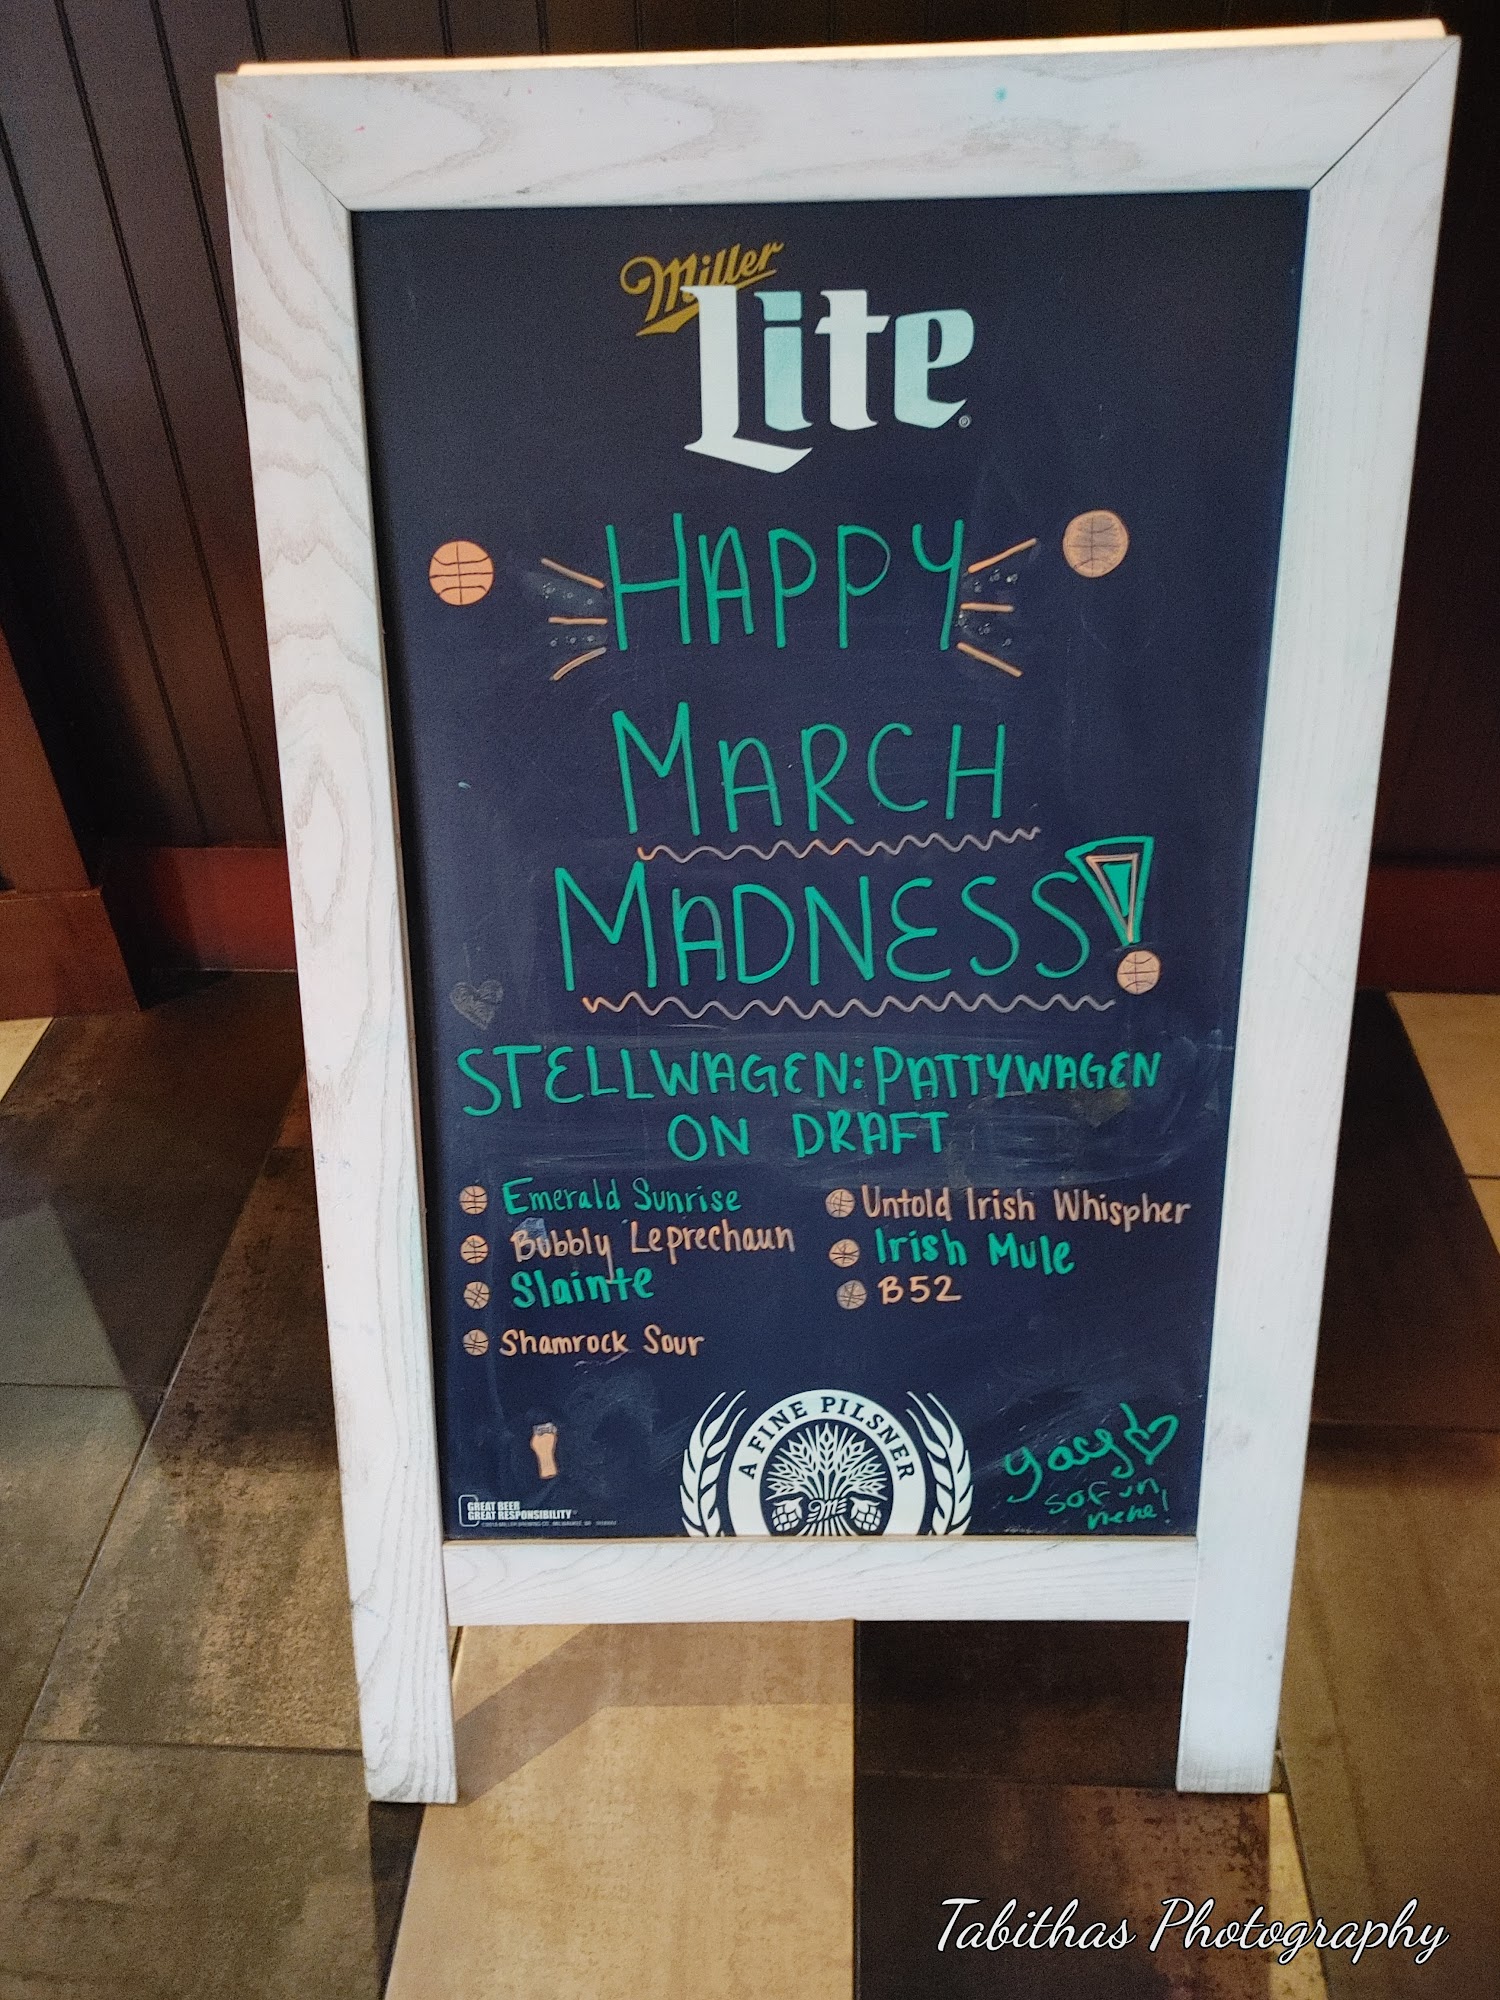 Miller
Lite
HAPPY
MARCH
MADNESS!
STELLWAGEN: PATTYWAGEN
ON DRAFT
Emerald Sunrise
Bubbly Leprechaun
Slainte
Shamrock Sour
Untold Irish Whispher
Irish Mule
B52
A FINE PILSNER
GREAT BEER
GREAT RESPONSIBILITY
Tabithas Photography